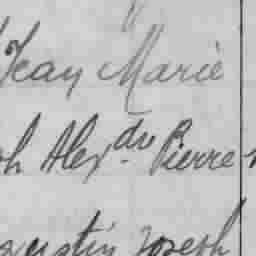 Jean Marie
ph Alexdre Pierre
Augustin Joseph